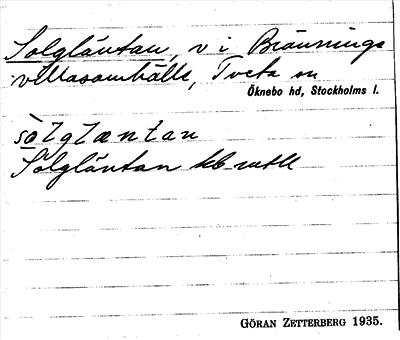 Solgläntan, v i Bränninge
villasamhälle, Tveta sn
Öknebo hd, Stockholms l.
sòlglæntan
Solgläntan
GÖRAN ZETTERBERG 1935.